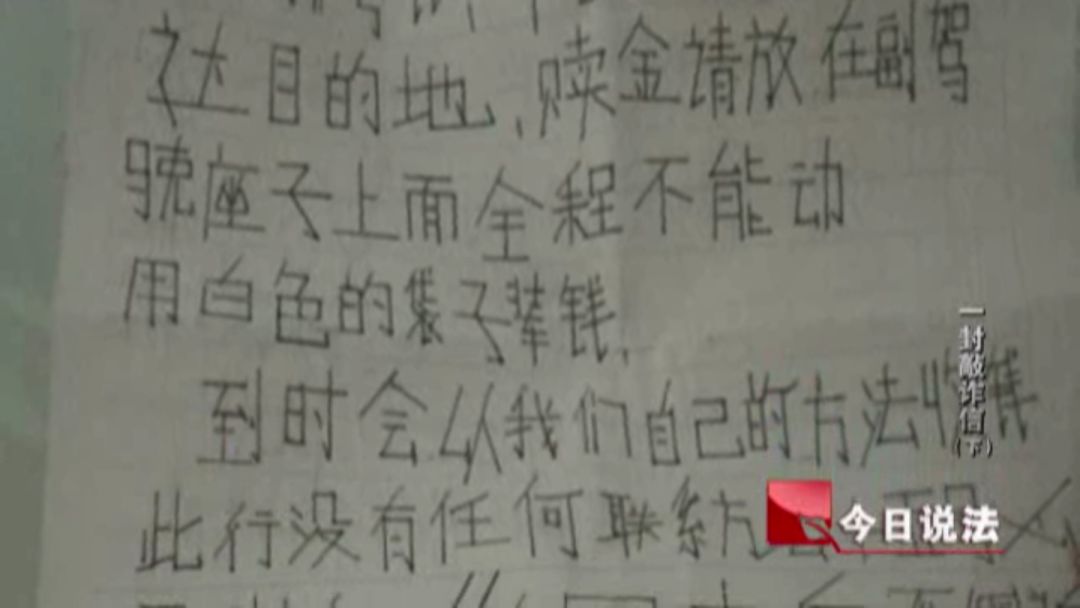 达目的地、赎金请放在副驾
驶座子上面全程不能动
用白色的袋子装钱、
到时会以我们自己的方法收钱
此行没有任何联系方
一封敲诈信(下)
今日说法